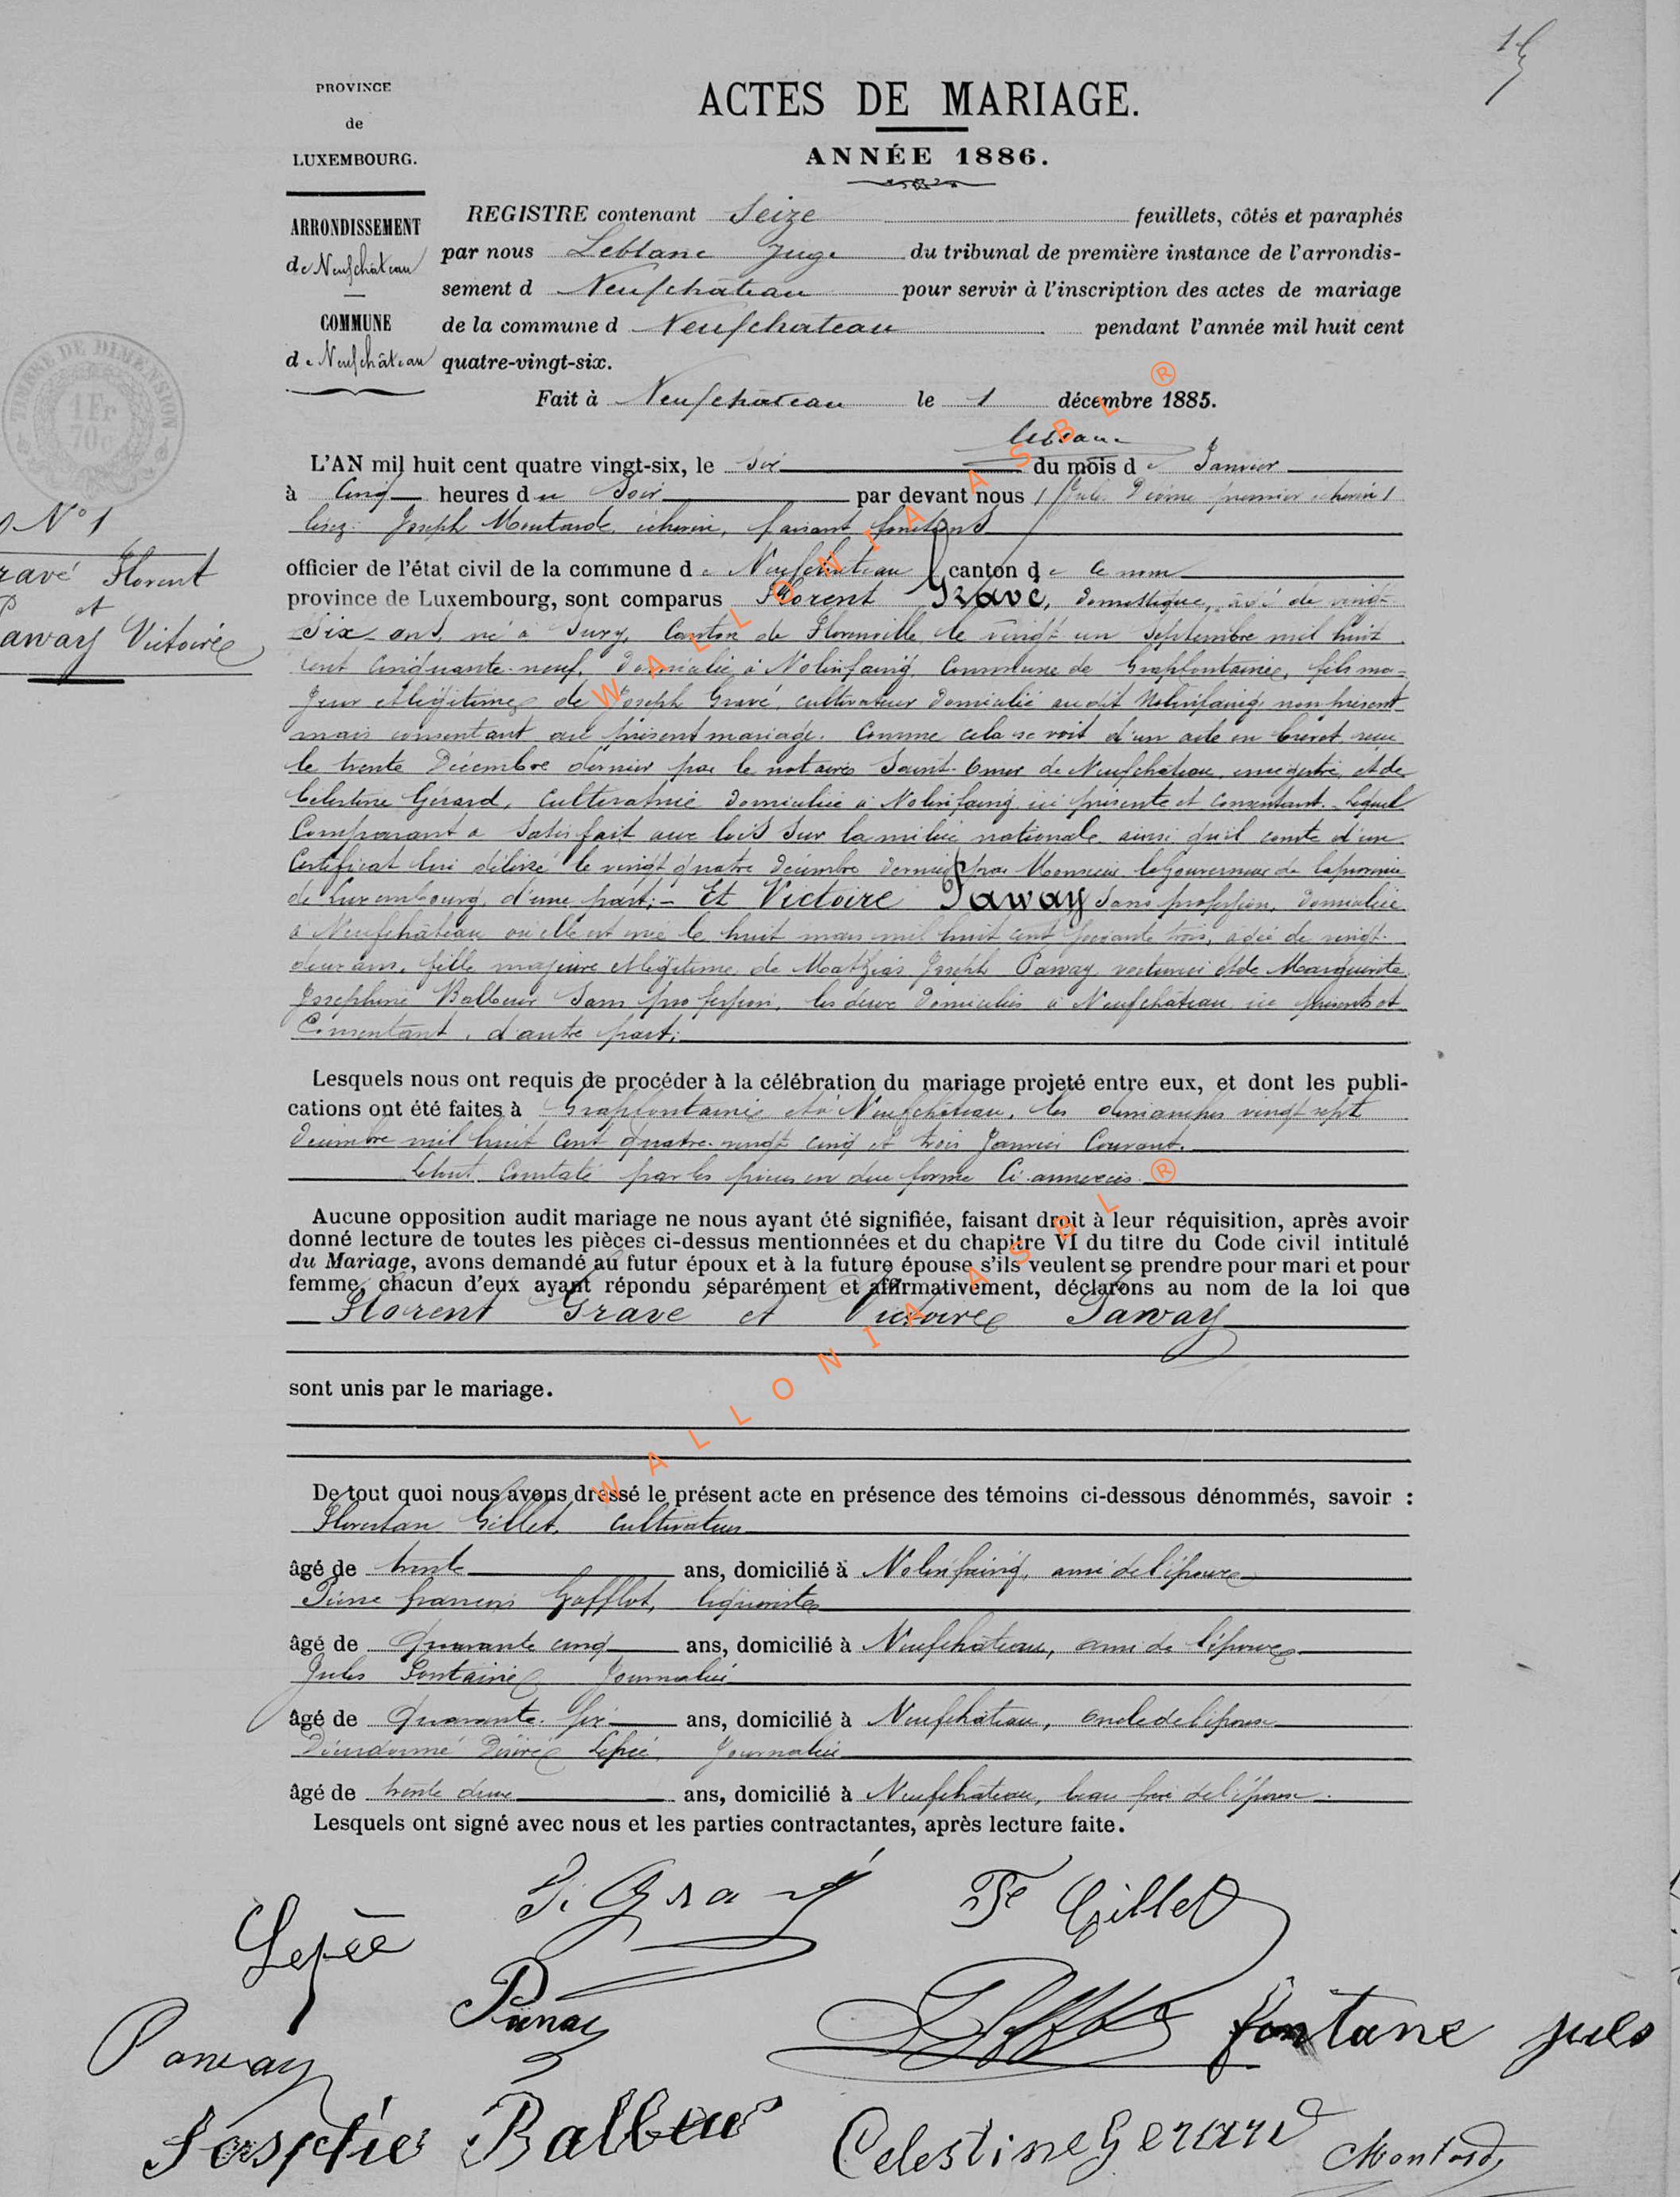 PROVINCE
de
LUXEMBOURG.
ARRONDISSEMENT
de Neufchâteau
COMMUNE
de Neufchâteau
TIMBRE DE DIMENSION
1 Fr
70c
ACTES DE MARIAGE.
ANNÉE 1886.
REGISTRE contenant Seize feuillets, côtés et paraphés
par nous Leblanc Juge du tribunal de première instance de l'arrondis-
sement d Neufchateau pour servir à l'inscription des actes de mariage
de la commune d Neufchateau pendant l'année mil huit cent
quatre-vingt-six.
Fait à Neufchateau le 1 décembre 1885.
Leblanc
N° 1
ravé Florent
et
Paway Victoire
L'AN mil huit cent quatre vingt-six, le six du mois de Janvier
à Cinq heures du Soir par devant nous premier échevin
lisez: Joseph Moutarde, échevin, faisant fonctions
officier de l'état civil de la commune de Neufchateau canton de ce nom
province de Luxembourg, sont comparus Florent Gravé, domestique, âgé de vingt-
Six ans, né à Suxy, Canton de Florenville le vingt-un Septembre mil huit
cent Cinquante-neuf, domicilié à Nolinfaing Commune de Grapfontaine, fils ma-
jeur et légitime de Joseph Gravé, cultivateur domicilié audit Nolinfaing non présent
mais consentant au présent mariage. Comme cela se voit d'un acte en brevet reçu
le trente Décembre dernier par le notaire Saint-Omer de Neufchâteau, enregistré, et de
Célestine Gérard, Cultivatrice domiciliée à Nolinfaing ici présente et consentant. Lequel
Comparant a Satisfait aux lois Sur la milice nationale ainsi qu'il conste d'un
Certificat lui délivré le vingt quatre décembre dernier par Monsieur le Gouverneur de la province
de Luxembourg, d'une part;- Et Victoire Paway Sans profession, domiciliée
à Neufchâteau où elle est née le huit mars mil huit cent soixante trois, âgée de vingt-
deux ans, fille majeure et légitime de Mathias Joseph Paway et de Marguerite
Josephine Balbeur Sans profession, les deux domiciliés à Neufchâteau ici présents et
Consentant, d'autre part;
Lesquels nous ont requis de procéder à la célébration du mariage projeté entre eux, et dont les publi-
cations ont été faites à Grapfontaine et à Neufchâteau, les dimanches vingt sept
décembre mil huit Cent quatre-vingt cinq et trois Janvier Courant.
Le tout Constaté par les pièces en due forme Ci-annexées.
Aucune opposition audit mariage ne nous ayant été signifiée, faisant droit à leur réquisition, après avoir
donné lecture de toutes les pièces ci-dessus mentionnées et du chapitre VI du titre du Code civil intitulé
du Mariage, avons demandé au futur époux et à la future épouse s'ils veulent se prendre pour mari et pour
femme, chacun d'eux ayant répondu séparément et affirmativement, déclarons au nom de la loi que
Florent Gravé et Victoire Paway
sont unis par le mariage.
De tout quoi nous avons dressé le présent acte en présence des témoins ci-dessous dénommés, savoir :
Florentan Gillet, Cultivateur
âgé de trente ans, domicilié à Nolinfaing, ami de l'époux
Pierre François Gofflot, liquoriste
âgé de Quarante cinq ans, domicilié à Neufchâteau, ami de l'époux
Jules Fontaine Journalier
âgé de Quarante-Six ans, domicilié à Neufchâteau, oncle de l'épouse
Dieudonné Désiré Lepée, Journalier
âgé de trente deux ans, domicilié à Neufchâteau, beau frère de l'épouse.
Lesquels ont signé avec nous et les parties contractantes, après lecture faite.
Lepée
Gravé
Gillet
Paway
fontane jules
Paway
Balbeur
Celestine Gerard
WALLONIA ASBL ®
WALLONIA ASBL ®